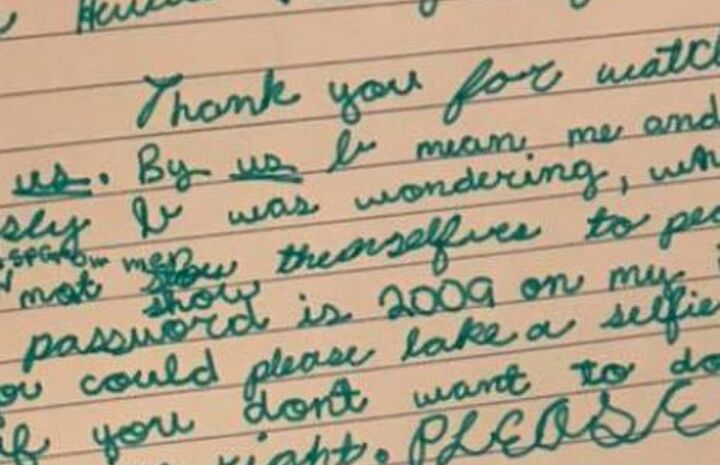 Thank you for watch
us. By us I mean me and
sly I was wondering,
not show themselfves to pe
show
password is 2009 on my
ou could please take a selfie
if you dont want to do
right. PLEASE